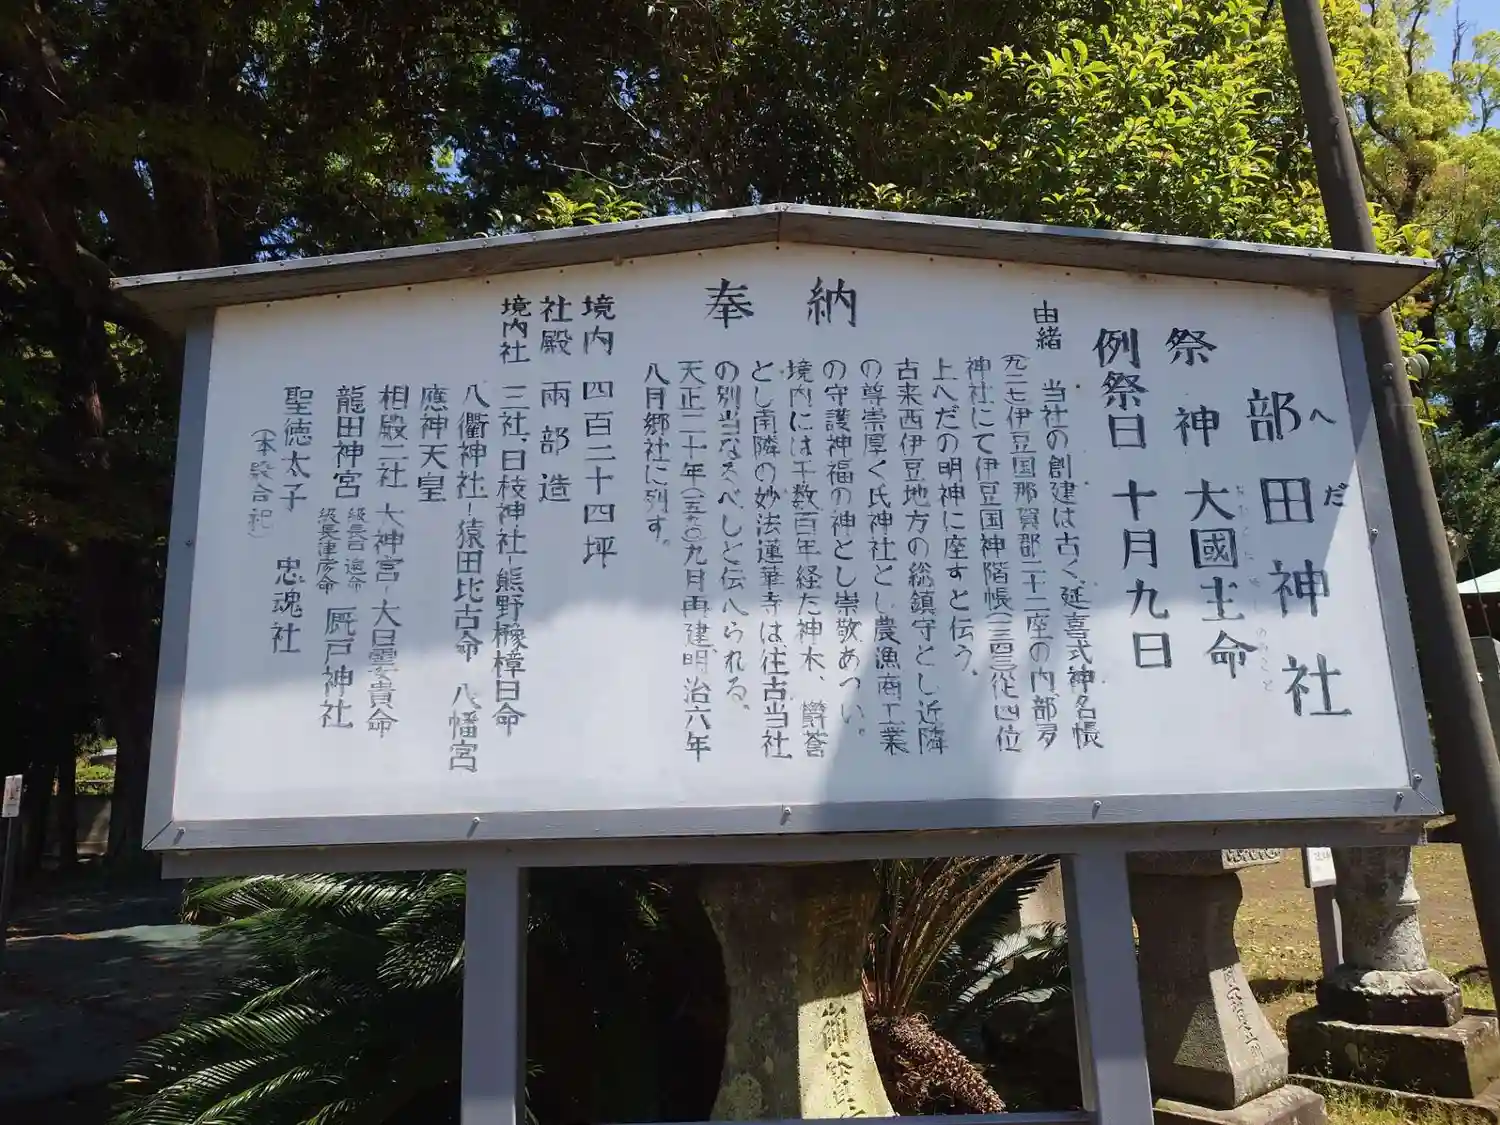 奉納
部田神社
へだ
祭神 大國主命
おおくにぬしのみこと
例祭日 十月九日
由緒 当社の創建は古く、延喜式神名帳
九二七伊豆国那賀郡二十二座の内部多
神社にて伊豆国神階帳(一三四三)従四位
上へだの明神に座すと伝う、
古来西伊豆地方の総鎮守とし近隣
の尊崇厚く氏神社とし農漁商工業
の守護神福の神とし崇敬あつい。
境内には千数百年経た神木、欝蒼
とし南隣の妙法蓮華寺は往古当社
の別当なるべしと伝へられる。
天正二十年(一五九〇)九月再建、明治六年
八月郷社に列す。
境内 四百二十四坪
社殿 両部造
境内社 三社、日枝神社-熊野櫲樟日命
八衢神社-猿田比古命 八幡宮
應神天皇
相殿二社 大神宮-大日孁貴命
龍田神宮 級長戸邊命 級長津彦命 厩戸神社
聖徳太子 忠魂社
(本殿合祀)